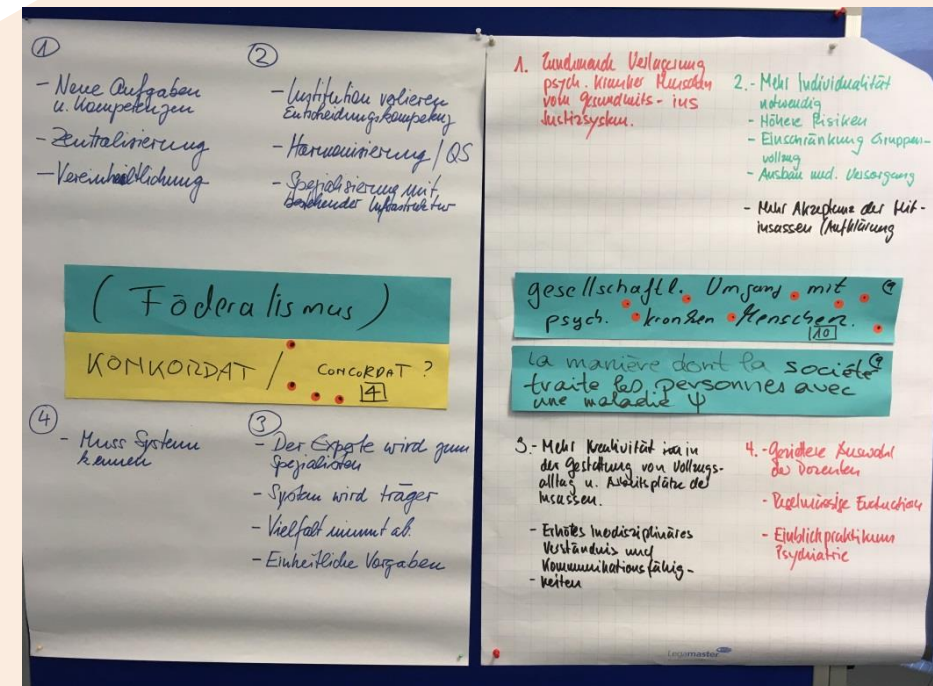 ①
- Neue Aufgaben
u. Kompetenzen
- Zentralisierung
- Vereinheitlichung
②
- Institution verlieren
Entscheidungskompetenz
- Harmonisierung / QS
- Spezialisierung mit
bestehender Infrastruktur
(Föderalismus)
KONKORDAT / CONCORDAT ?
4
④
- Muss System
kennen
③
- Der Experte wird zum
Spezialisten
- System wird träger
- Vielfalt nimmt ab.
- Einheitliche Vorgaben
1. Zunehmende Verlagerung
psych. kranker Menschen
vom Gesundheits- ins
Justizsystem.
2. - Mehr Individualität
notwendig
- Höhere Risiken
- Einschränkung Gruppen-
vollzug
- Ausbau med. Versorgung
- Mehr Akzeptanz der Mit-
insassen (Aufklärung
gesellschaftl. Umgang mit
psych. kranken Menschen.
10
La manière dont la société
traite les personnes avec
une maladie Ψ
3. - Mehr Kreativität in
der Gestaltung von Vollzugs-
alltag u. Arbeitsplätze der
Insassen.
- Erhötes
Verständnis und
Kommunikationsfähig-
- keiten
4. - Gezieltere Auswahl
der Dozenten
- Regelmässige Evaluation
- Einblickpraktikum
Psychiatrie
Legamaster